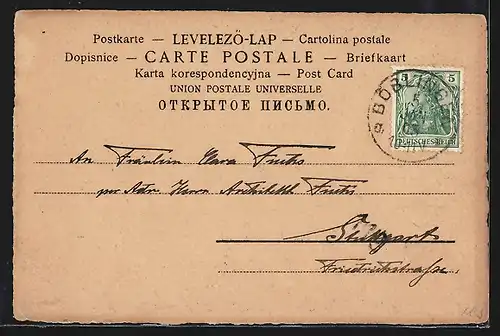 Postkarte — LEVELEZŐ-LAP — Cartolina postale
Dopisnice — CARTE POSTALE — Briefkaart
Karta korespondencyjna — Post Card
UNION POSTALE UNIVERSELLE
ОТКРЫТОЕ ПИСЬМО.
5 5
DEUTSCHES REICH
BÖBLINGEN
An Fräulein Clara Fuchs
per Adr. Herrn Architekt Fuchs
Stuttgart
Friedrichstrasse